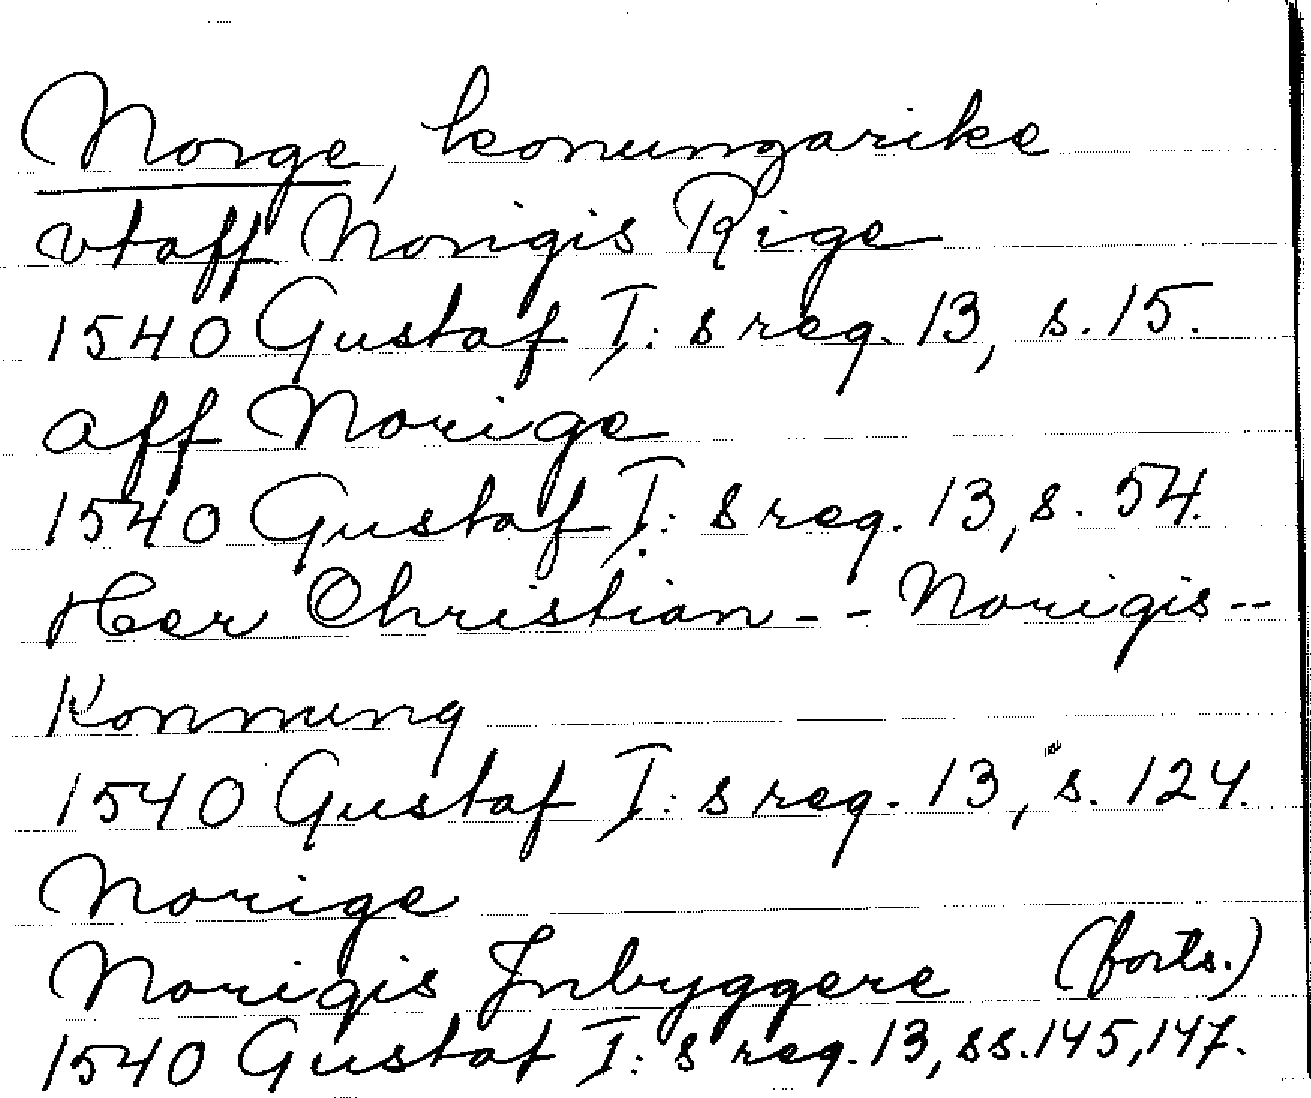 Norge, konungarike
vtaff Norigis Rige
1540 Gustaf I: s reg. 13, s. 15.
aff Norige
1540 Gustaf I: s reg. 13, s. 54.
Her Christian - - Norigis - -
Konnung
1540 Gustaf I: s reg. 13, s. 124.
Norige
Norigis Inbyggere (forts.)
1540 Gustaf I: s reg. 13, ss. 145, 147.